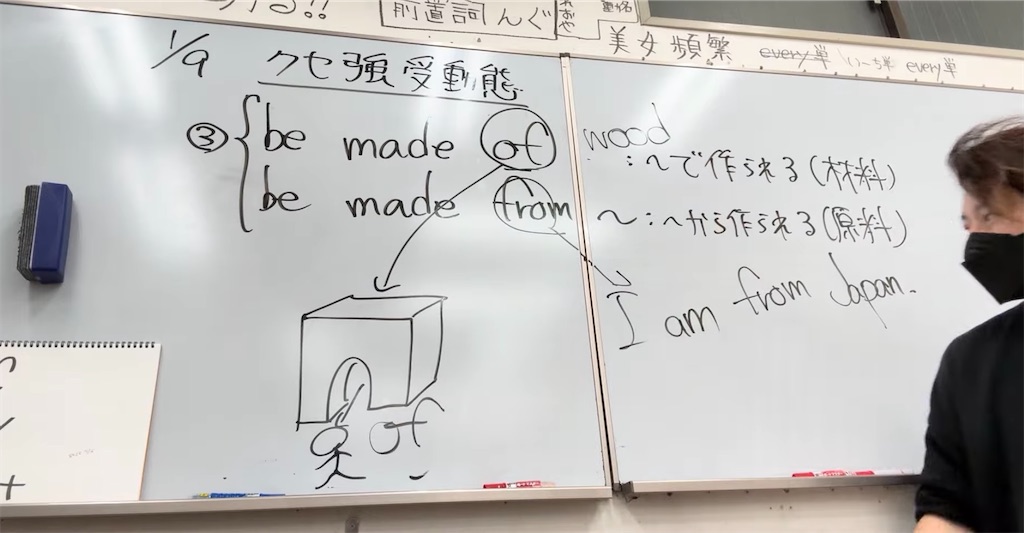 る!!
前置詞んぐ
美女頻繁 every単 いーち単 every単
1/9 クセ強受動態
③ be made of wood :〜で作られる(材料)
be made from 〜:〜から作られる(原料)
I am from Japan.
of